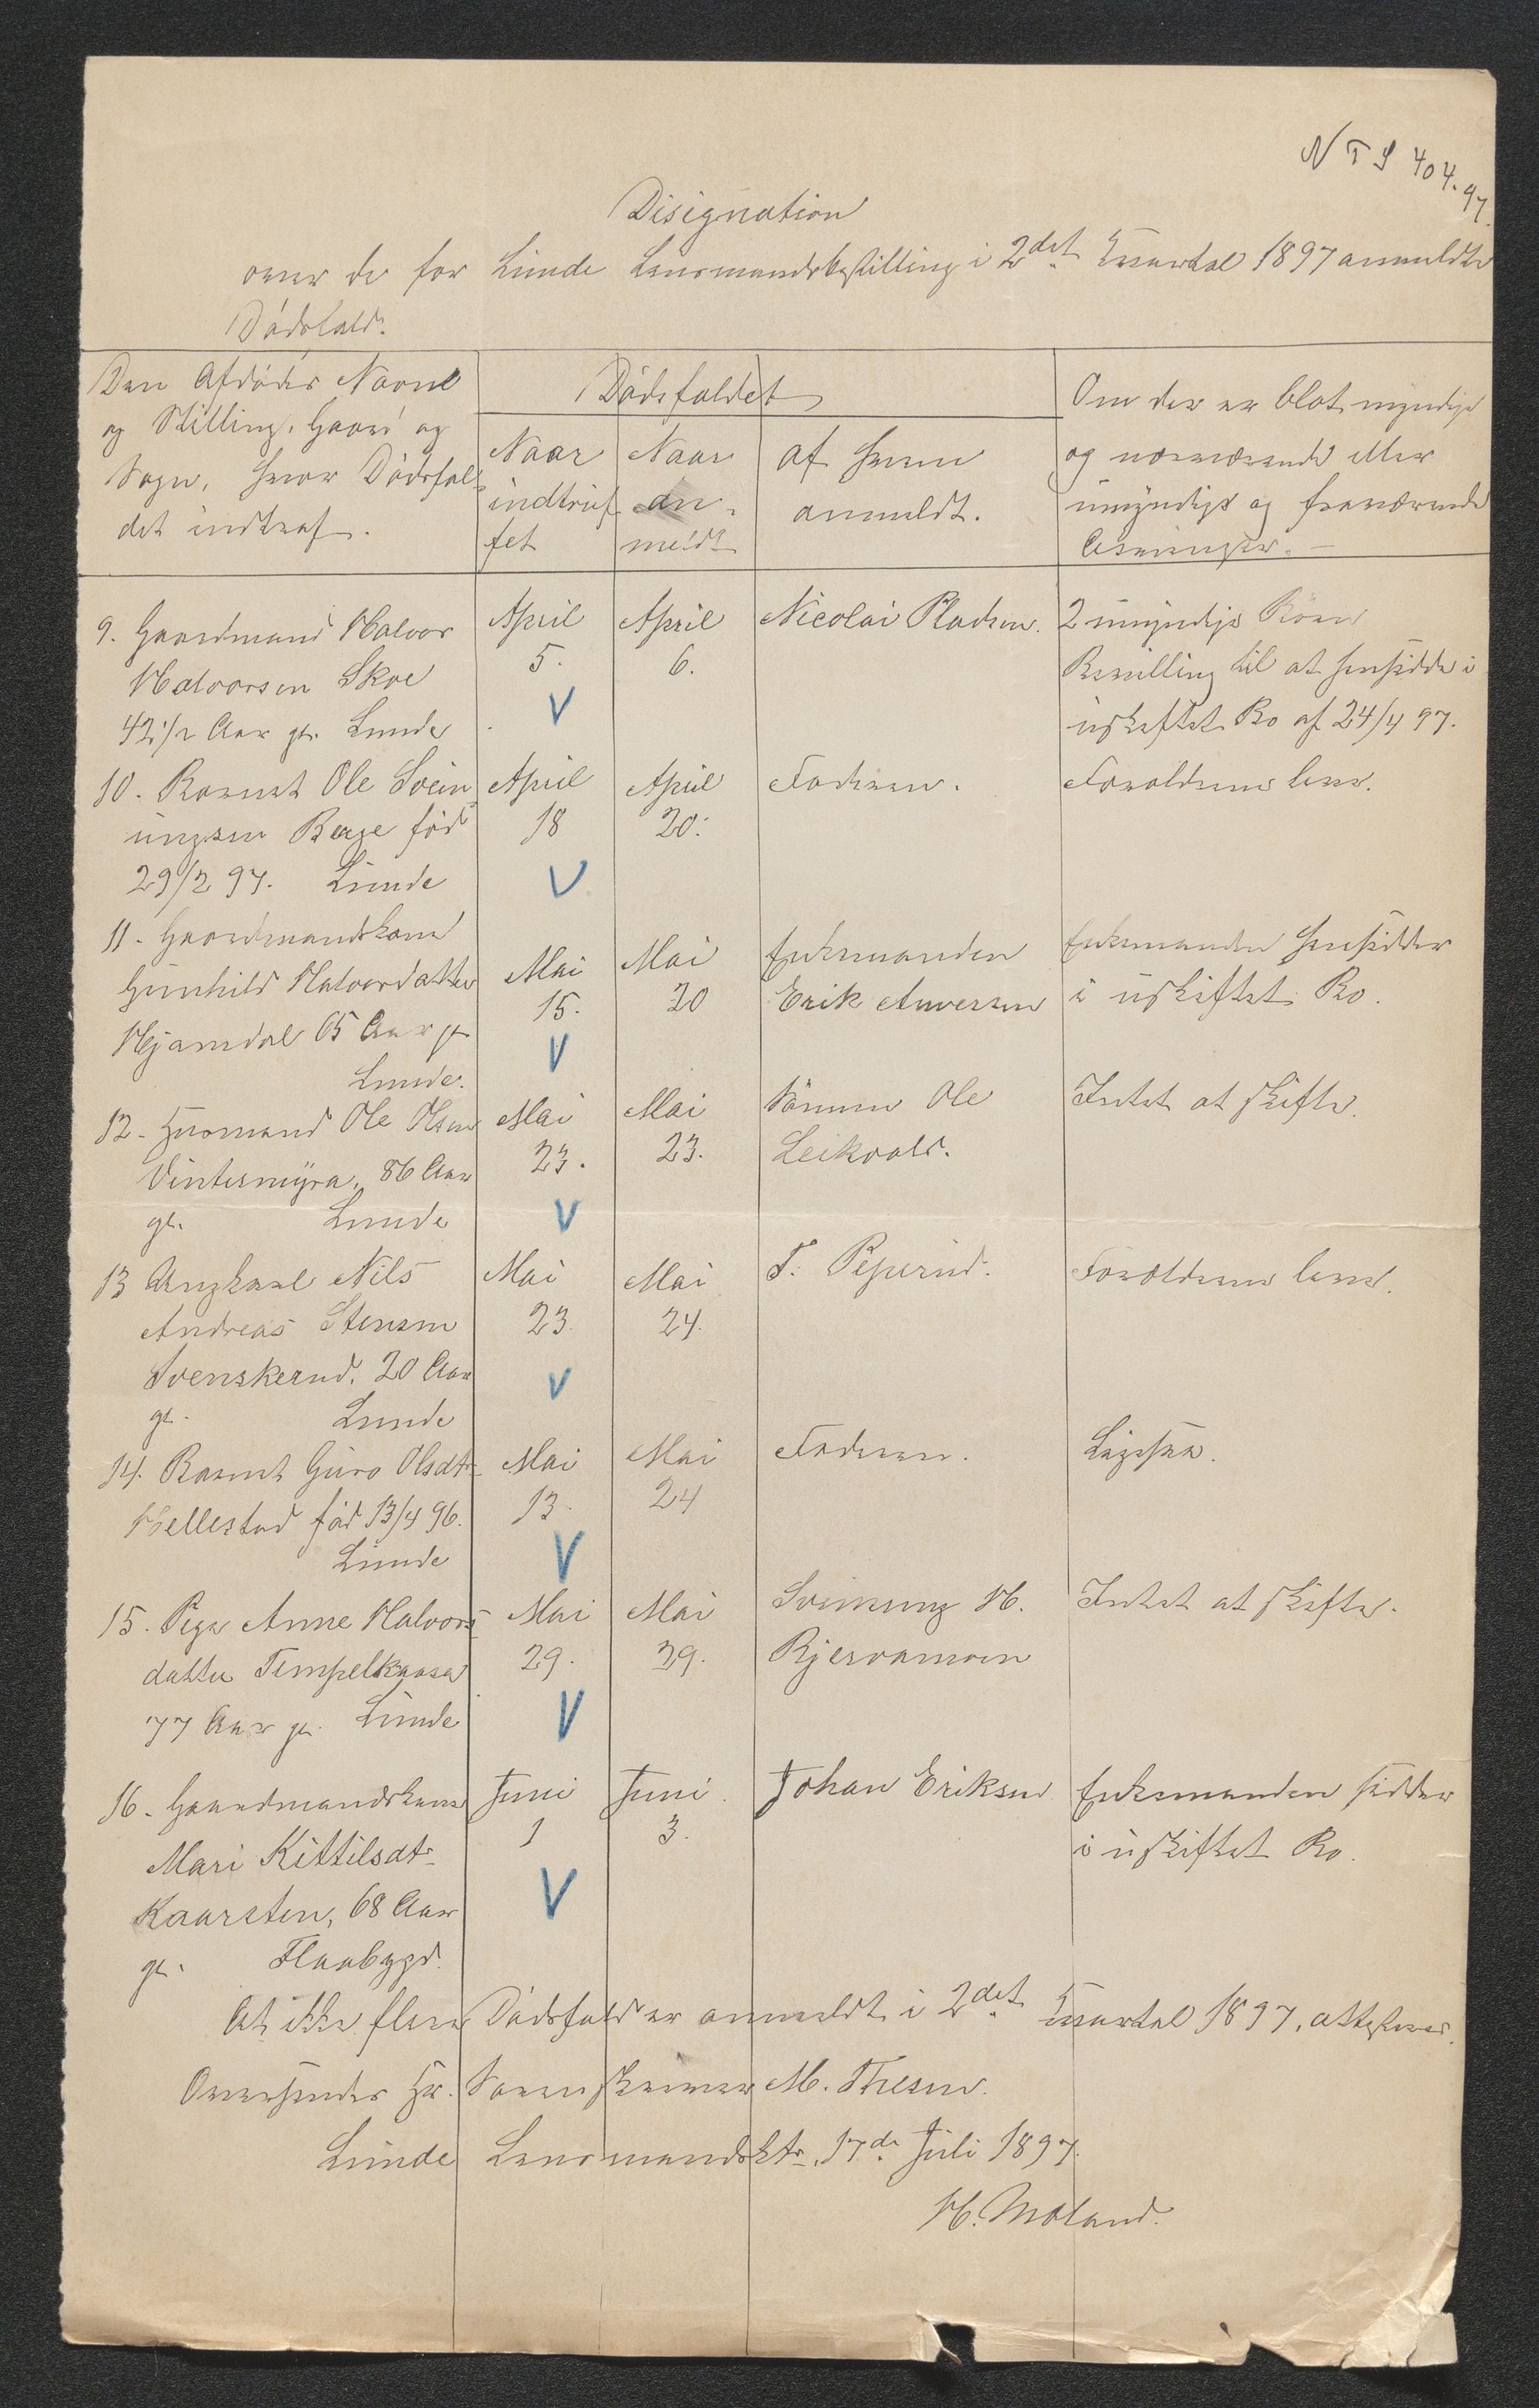 N T S 404.97.
Disignation
over de for Lunde Lensmandsbestilling i 2det Kvartal 1897 anmeldte
Dödsfald.
Den Afdödes Navne
og Stilling, Gaard og
Sogn, hvor Dödsfal-
det indtraf.
Dödsfaldet
Naar
indtruf-
fet
Naar
an-
meldt
af hvem
anmeldt.
Om der er blot myndige
og nærværende eller
umyndige og fraværende
Arvinger. —
9. Gaardmand Halvor
Halvorsen Skoe
42 1/2 Aar gl. Lunde
April
5.
April
6.
Nicolai Pladsen.
2 umyndige Börn
Bevilling til at hensidde i
uskiftet Bo af 24/4 97.
10. Barnet Ole Svein
ungsen Berge föd
29/2 97. Lunde
April
18
April
20.
Faderen.
Forældrene lever.
11. Gaardmandskone
Gunhild Halvorsdatter
Hjamdal 65 Aar gl.
Lunde.
Mai
15.
Mai
20
Enkemanden
Erik Anversen
Enkemanden hensidder
i uskiftet Bo.
12. Husmand Ole Olsen
Vintermyra, 86 Aar
gl. Lunde
Mai
23.
Mai
23.
Sönnen Ole
Leikvold.
Intet at skifte.
13 Ungkarl Nils
Andreas Stensen
Svenskerud. 20 Aar
gl. Lunde
Mai
23.
Mai
24.
T. Peperud.
Forældrene lever.
14. Barnet Guro Olsdtr
Hellestad föd 13/4 96.
Lunde
Mai
13.
Mai
24
Faderen.
Ligesaa.
15. Pige Anne Halvors
datter Tempelkaasa
77 Aar gl. Lunde
Mai
29.
Mai
29.
Sveinung H.
Bjervamoen
Intet at skifte.
16. Gaardmandskone
Mari Kittilsdtr
Kaarsten, 68 Aar
gl. Flaabygd.
Juni
1
Juni
3.
Johan Eriksen
Enkemanden sidder
i uskiftet Bo.
At ikke flere Dödsfald er anmeldt i 2det Kvartal 1897, attesteres.
Oversendes Hr. Sorenskriver M. Thesen.
Lunde Lensmandsktr. 17de Juli 1897.
H. Moland.